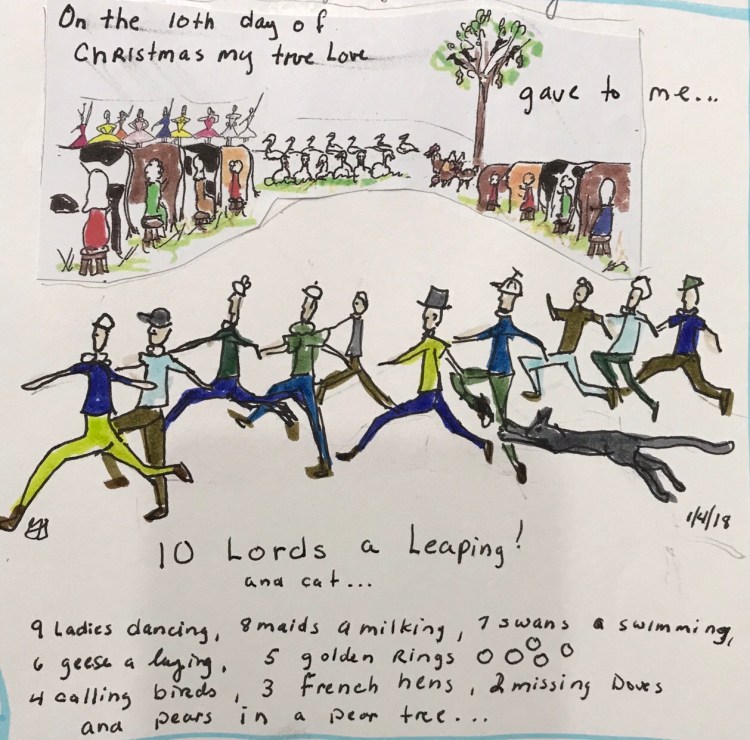 On the 10th day of
Christmas my true Love
gave to me...
1/4/18
10 Lords a Leaping!
and cat...
9 Ladies dancing, 8 maids a milking, 7 swans a swimming,
6 geese a laying, 5 golden Rings
4 calling birds, 3 French hens, 2 missing Doves
and pears in a pear tree...